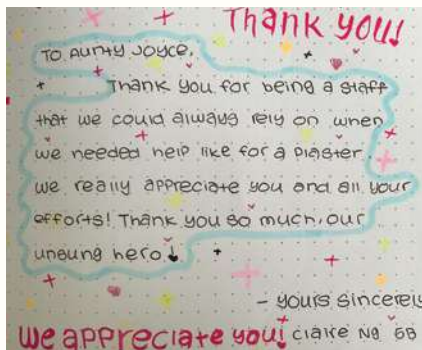 Thank you!
To Aunty Joyce,
Thank you for being a staff
that we could always rely on when
we needed help like for a plaster.
we really appreciate you and all your
efforts! Thank you so much, our
unsung hero!
- yours sincerely
we appreciate you! Claire Ng 6B